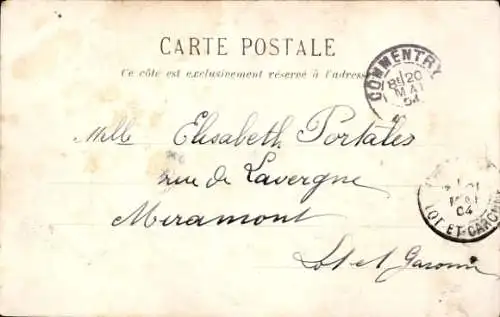 CARTE POSTALE
Ce côté est exclusivement réservé à l'adresse
COMMENTRY
20
MAI
04
Melle Elisabeth Portales
rue de Lavergne
Miramont
Lot et Garonne
04
LOT-ET-GARONNE